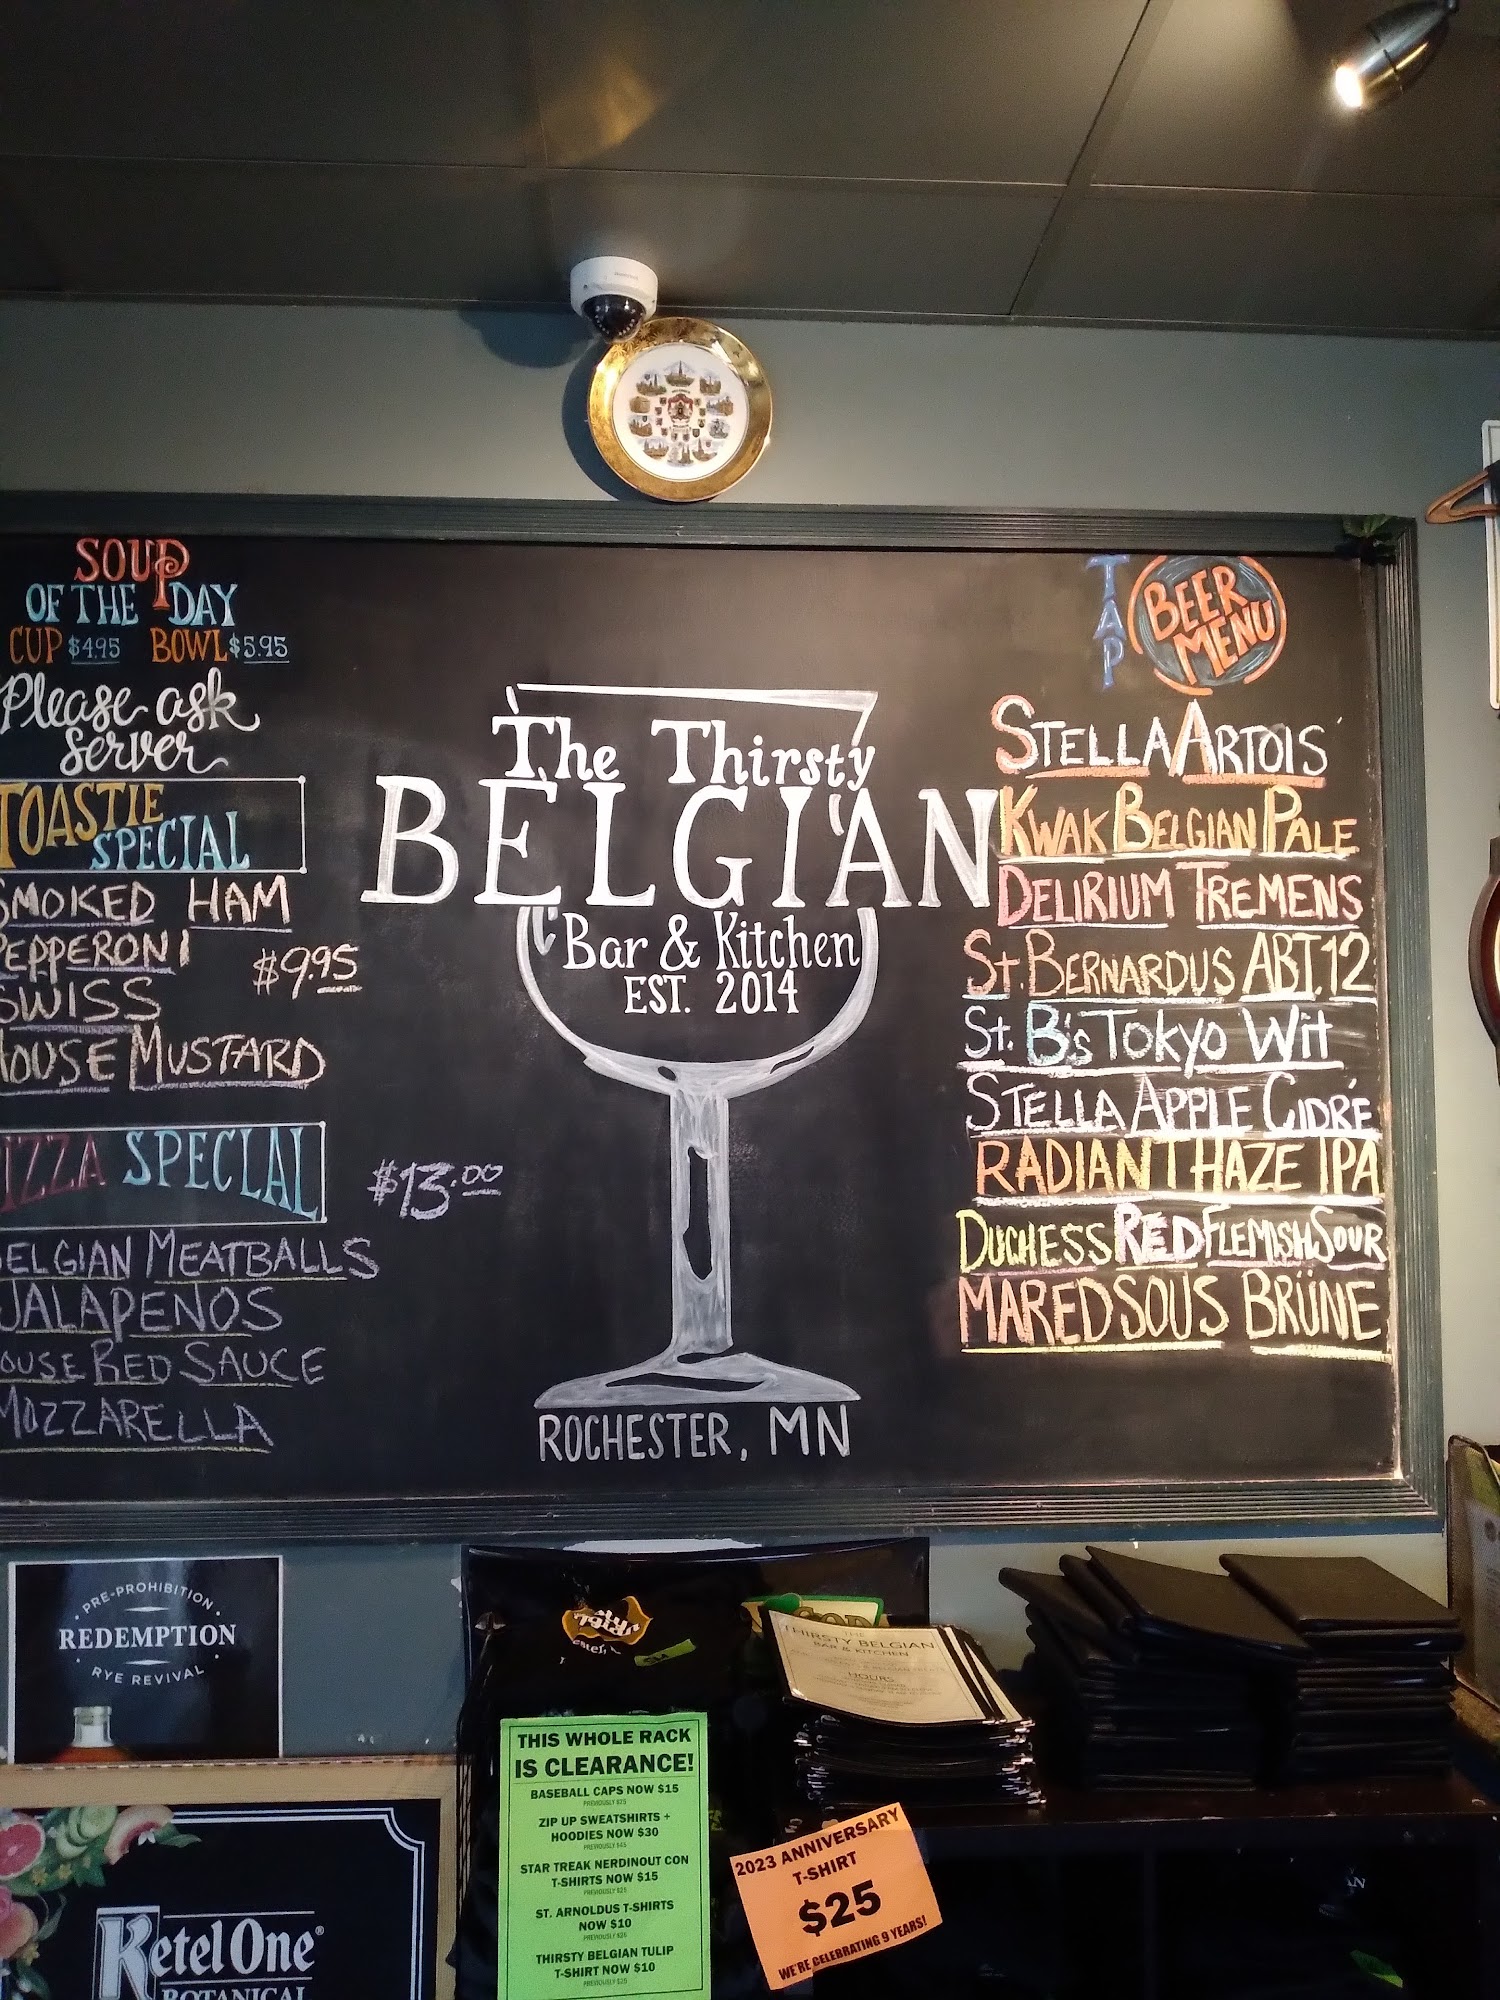 SOUP
OF THE DAY
CUP $4.95 BOWL $5.95
Please ask
server
TOASTIE
SPECIAL
SMOKED HAM
PEPPERONI
$9.95
SWISS
HOUSE MUSTARD
PIZZA SPECIAL
$13.00
BELGIAN MEATBALLS
JALAPENOS
HOUSE RED SAUCE
MOZZARELLA
The Thirsty
BELGIAN
Bar & Kitchen
EST. 2014
ROCHESTER, MN
TAP
BEER
MENU
STELLA ARTOIS
KWAK BELGIAN PALE
DELIRIUM TREMENS
St. BERNARDUS ABT. 12
St. B's TOKYO WIT
STELLA APPLE CIDRÉ
RADIANT HAZE IPA
DUCHESS RED FLEMISH SOUR
MAREDSOUS BRÜNE
PRE-PROHIBITION
REDEMPTION
RYE REVIVAL
Ketel One®
BOTANICAL
THIS WHOLE RACK
IS CLEARANCE!
BASEBALL CAPS NOW $15
PREVIOUSLY $25
ZIP UP SWEATSHIRTS +
HOODIES NOW $30
PREVIOUSLY $45
STAR TREAK NERDINOUT CON
T-SHIRTS NOW $15
PREVIOUSLY $25
ST. ARNOLDUS T-SHIRTS
NOW $10
PREVIOUSLY $26
THIRSTY BELGIAN TULIP
T-SHIRT NOW $10
PREVIOUSLY $25
THE
THIRSTY BELGIAN
BAR & KITCHEN
HOURS
2023 ANNIVERSARY
T-SHIRT
$25
WE'RE CELEBRATING 9 YEARS!